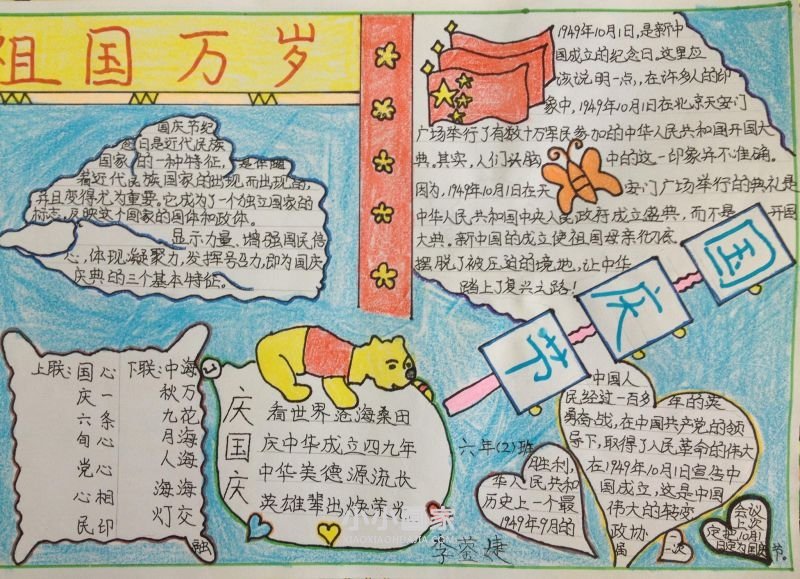 祖国万岁
国庆节纪
念日是近代民族
国家的一种特征,是伴随
着近代民族国家的出现而出现的,
并且变得尤为重要。它成为了一个独立国家的
标志,反映这个国家的国体和政体。
显示力量、增强国民信
心,体现凝聚力,发挥号召力,即为国庆
庆典的三个基本特征。
1949年10月1日,是新中
国成立的纪念日。这里应
该说明一点,在许多人的印
象中,1949年10月1日在北京天安门
广场举行了有数十万军民参加的中华人民共和国开国大
典。其实,人们头脑中的这一印象并不准确。
因为,1949年10月1日在天安门广场举行的典礼是
中华人民共和国中央人民政府成立盛典,而不是开国
大典。新中国的成立使祖国母亲彻底
摆脱了被压迫的境地,让中华
踏上了复兴之路!
国庆节
上联:国庆六旬党心民心一条心心相印
下联:中秋九月人海灯海万花海海交融
庆国庆
看世界沧海桑田
庆中华成立四九年
中华美德源流长
英雄辈出焕荣光
六年(2)班
中国人
民经过一百多年的英
勇奋战,在中国共产党的领
导下,取得了人民革命的伟大
胜利,在1949年10月1日宣告中
华人民共和国成立,这是中国
历史上一个最伟大的转变
1949年9月的政协
届一次
会议
上次
定把10月1
日定为国庆节。
小小画家
XIAOXIAOHUAJIA.COM